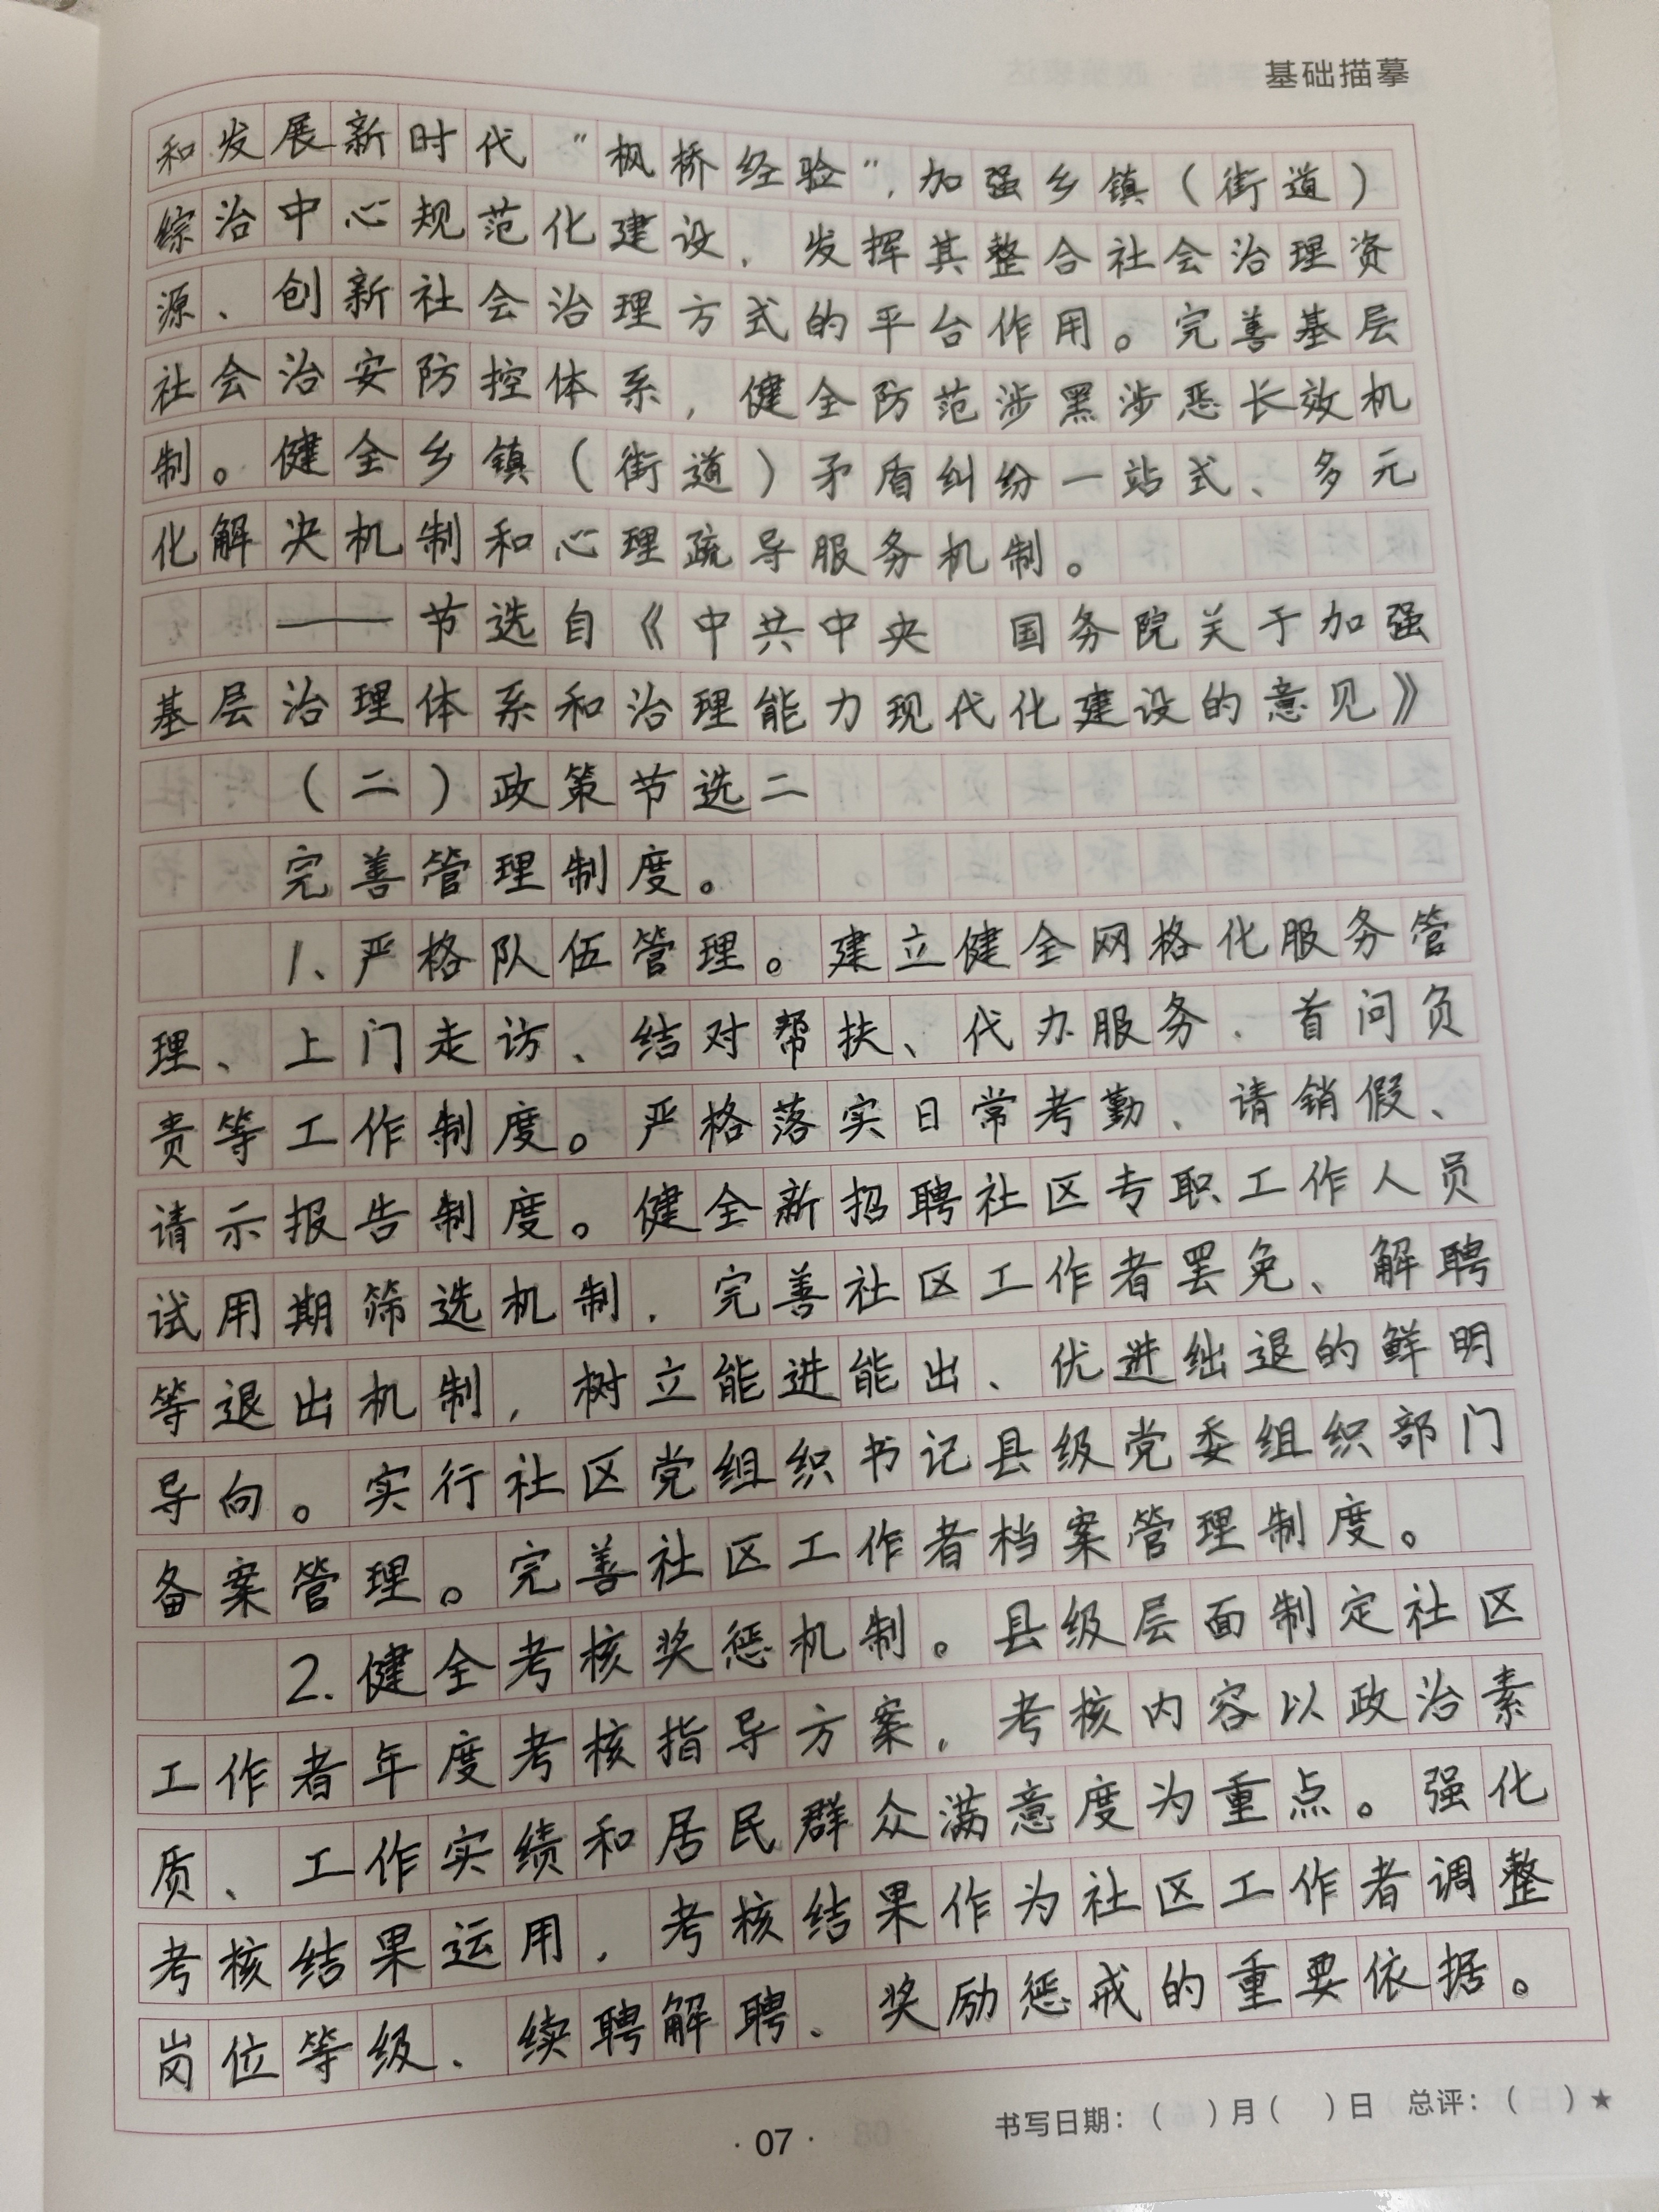 基础描摹
和发展新时代“枫桥经验”,加强乡镇(街道)
综治中心规范化建设,发挥其整合社会治理资
源、创新社会治理方式的平台作用。完善基层
社会治安防控体系,健全防范涉黑涉恶长效机
制。健全乡镇(街道)矛盾纠纷一站式、多元
化解决机制和心理疏导服务机制。
——节选自《中共中央 国务院关于加强
基层治理体系和治理能力现代化建设的意见》
(二)政策节选二
完善管理制度。
1、严格队伍管理。建立健全网格化服务管
理、上门走访、结对帮扶、代办服务、首问负
责等工作制度。严格落实日常考勤、请销假、
请示报告制度。健全新招聘社区专职工作人员
试用期筛选机制,完善社区工作者罢免、解聘
等退出机制,树立能进能出、优进绌退的鲜明
导向。实行社区党组织书记县级党委组织部门
备案管理。完善社区工作者档案管理制度。
2.健全考核奖惩机制。县级层面制定社区
工作者年度考核指导方案,考核内容以政治素
质、工作实绩和居民群众满意度为重点。强化
考核结果运用,考核结果作为社区工作者调整
岗位等级、续聘解聘、奖励惩戒的重要依据。
书写日期:( )月( )日 总评:( )★
·07·